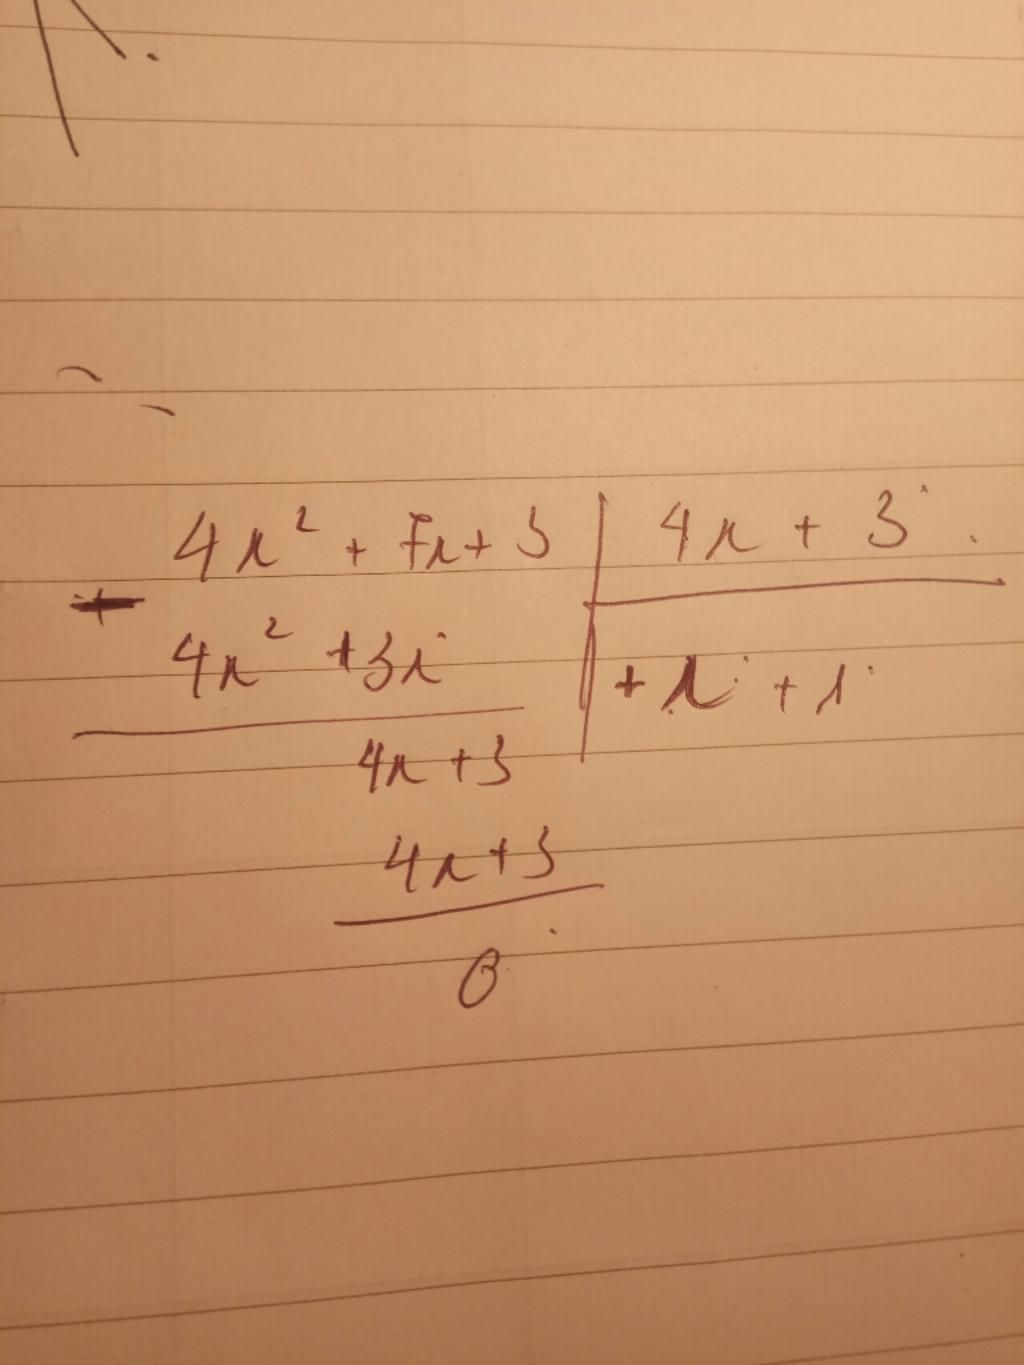 4x² + 7x + 3 | 4x + 3
-
4x² + 3x | + x + 1
4x + 3
4x + 3
0